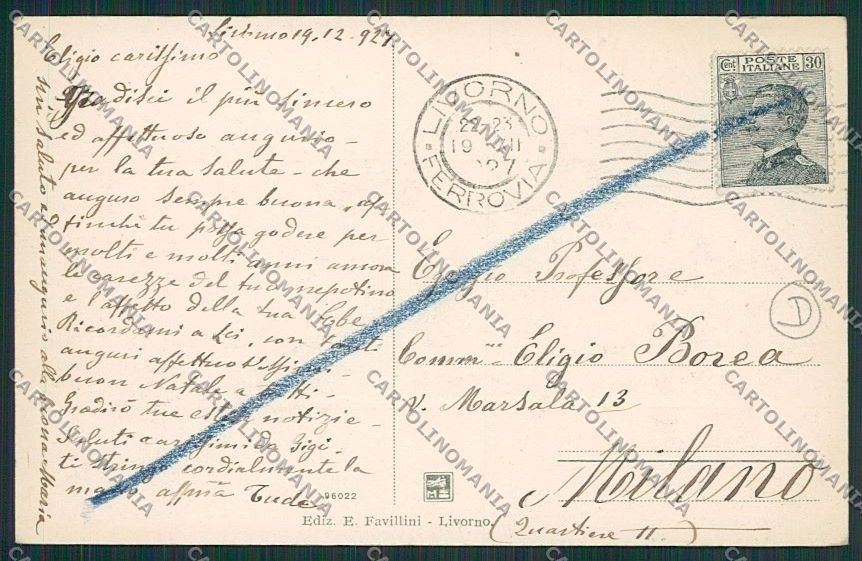 Livorno 19.12.927
Eligio carissimo
Gradisci il più sincero
ed affettuoso augurio -
per la tua salute - che
auguro sempre buona, af-
finchè tu possa godere per
molti e molti anni ancora
le carezze del tuo nepotino
e l'affetto della tua
Ricordami a Lei, con tanti
auguri affettuosissimi
buon Natale a tutti -
Gradirò tue estese notizie -
Saluti carissimi da Gigi -
ti stringo cordialmente la
mano affma Tude
Un saluto e un augurio alla buona Maria
LIVORNO
22-23
19 XII
927
FERROVIA
Cent POSTE ITALIANE 30
Egregio Professore
Comm. Eligio Borea
V. Marsala 13
Milano
(Quartiere 11)
A
96022
Ediz. E. Favillini - Livorno.
CARTOLINOMANIA